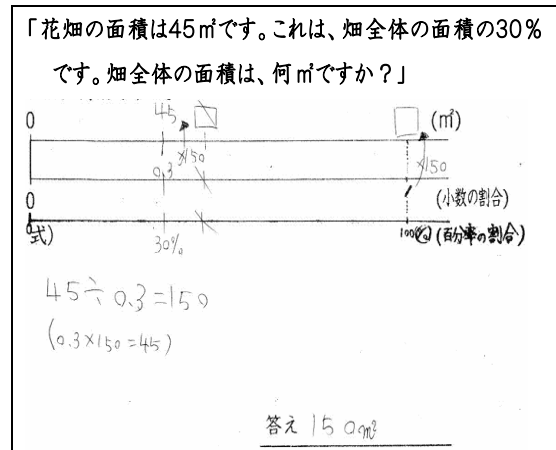 「花畑の面積は45㎡です。これは、畑全体の面積の30%
です。畑全体の面積は、何㎡ですか?」
0 45 □ □ (㎡)
×150 ×150
0.3
0 (小数の割合)
式) 30% 100(%) (百分率の割合)
45÷0.3=150
(0.3×150=45)
答え 150㎡